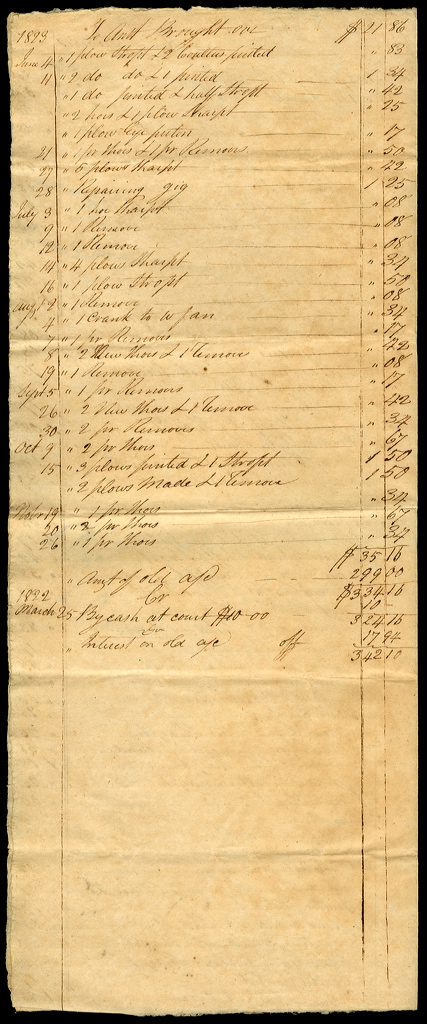 1823 To Amt Brought over $21 86
June 4 " 1 plow Stropt & 2 Coulters pointed " 83
11 " 2 do do & 1 pointed 1 34
" 1 do pointed & half Stropt " 42
" 2 hoes & 1 plow Sharpt " 25
" 1 plow Eye putin " 17
21 " 1 pr Shoes & 1 pr Removes " 50
27 " 5 plows Sharpt " 42
28 " Repairing gig 1 25
July 3 " 1 hoe Sharpt " 08
9 " 1 Remove " 08
12 " 1 Remove " 08
14 " 4 plows Sharpt " 34
16 " 1 plow Stropt " 50
Augt 2 " 1 Remove " 08
4 " 1 Crank to W fan " 34
7 " 1 pr Removes " 17
8 " 2 New Shoes & 1 Remove " 42
19 " 1 Remove " 08
Sept 5 " 1 pr Removes " 17
26 " 2 New Shoes & 1 Remove " 42
30 " 2 pr Removes " 34
Oct 9 " 2 pr Shoes " 67
15 " 3 plows pointed & 1 Stropt 1 50
" 2 plows Made & 1 Remove 1 50
Nobr 19 " 1 pr Shoes " 34
20 " 2 pr Shoes " 67
26 " 1 pr Shoes " 34
$35 16
" Amt of old a/c 299 00
Cr $334 16
1822
March 25 By cash at court $10-00 10 -
324 16
" Interest on old a/c off 17 94
342 10